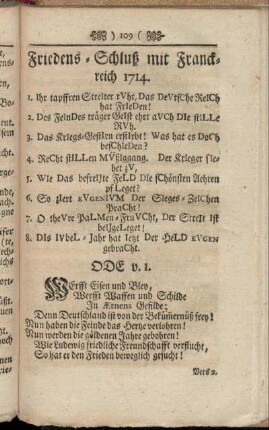 ) 109 (
Friedens-Schluß mit Franck-
reich 1714.
1. Ihr tapffren StreIter rVht, Das DeVtsChe ReICh
hat FrIeDen!
2. Des FeInDes träger GeIst ehrt aVCh DIe stILLe
RVh.
3. Das KrIegs-GestIrn erstIrbt! Was hat es DoCh
besChIeDen?
4. ReCht stILLen MVßIggang. Der KrIeger sIe-
het zV,
5. WIe Das befreIte FeLD DIe sChönsten Aehren
pfLeget?
6. So zIert eVgenIVM Der SIeges-ZeIChen
PraCht!
7. O theVre PaLMen-FrVCht, Der StreIt Ist
beIgeLeget!
8. DIs IVbeL-Jahr hat Ietzt Der HeLD eVgen
gebraCht.
ODE v. I.
Werfft Eisen und Bley,
Werfft Waffen und Schilde
In Ætnens Gefilde;
Denn Deutschland ist von der Bekümmernüß frey!
Nun haben die Feinde das Hertze verlohren!
Nun werden die güldenen Jahre gebohren!
Wie Ludewig friedliche Freundschafft verflucht,
So hat er den Frieden beweglich gesucht!
Vers 2.